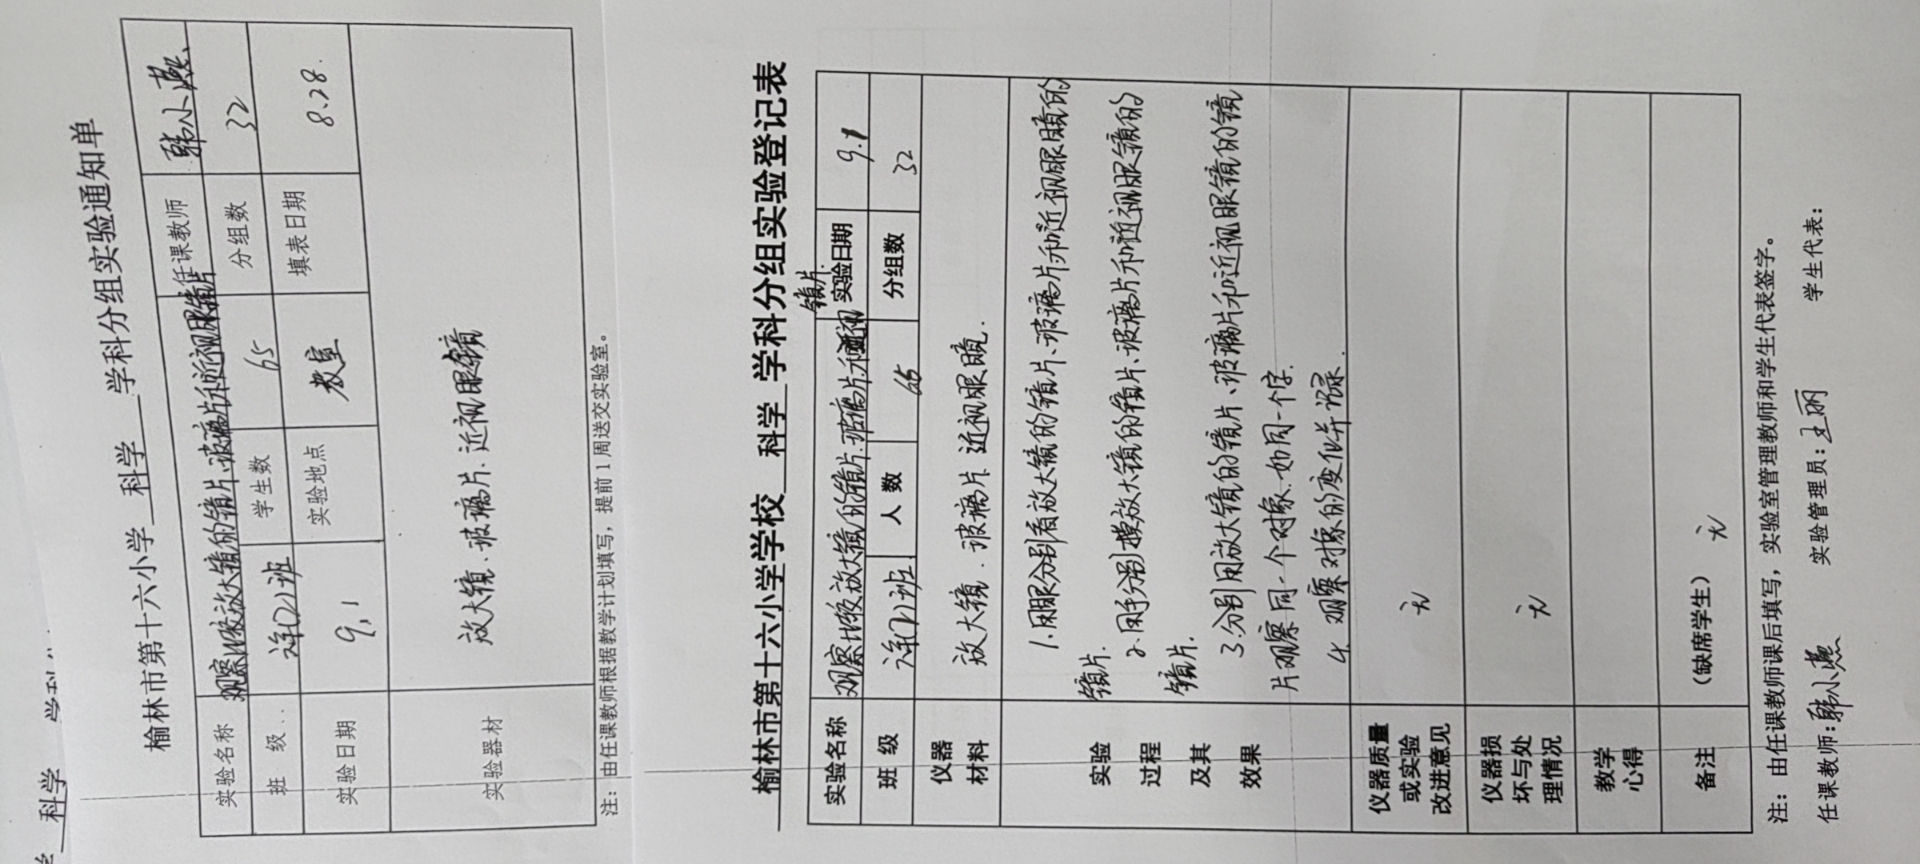 科学 学科
榆林市第十六小学 科学 学科分组实验通知单
实验名称 观察比较放大镜的镜片、玻璃片和近视眼镜镜片 任课教师 韩小燕
班 级 (2)班 学生数 65 分组数 32
实验日期 9.1 实验地点 教室 填表日期 8.28.
实验器材 放大镜、玻璃片、近视眼镜
注：由任课教师根据教学计划填写，提前1周送交实验室。
榆林市第十六小学学校 科学 学科分组实验登记表
实验名称 观察比较放大镜的镜片、玻璃片和近视镜片. 实验日期 9.1
班 级 (2)班 人 数 65 分组数 32
仪器材料 放大镜、玻璃片、近视眼镜.
实验过程及其效果
1.用眼分别看放大镜的镜片、玻璃片和近视眼镜的
镜片.
2.用手分别摸放大镜的镜片、玻璃片和近视眼镜的
镜片.
3.分别用放大镜的镜片、玻璃片和近视眼镜的镜
片观察同一个对象.如同一个字.
4.观察对象的变化并记录.
仪器质量或实验改进意见 无
仪器损坏与处理情况 无
教学心得
备注 （缺席学生） 无
注：由任课教师课后填写，实验室管理教师和学生代表签字。
任课教师：韩小燕 实验管理员：王丽 学生代表：